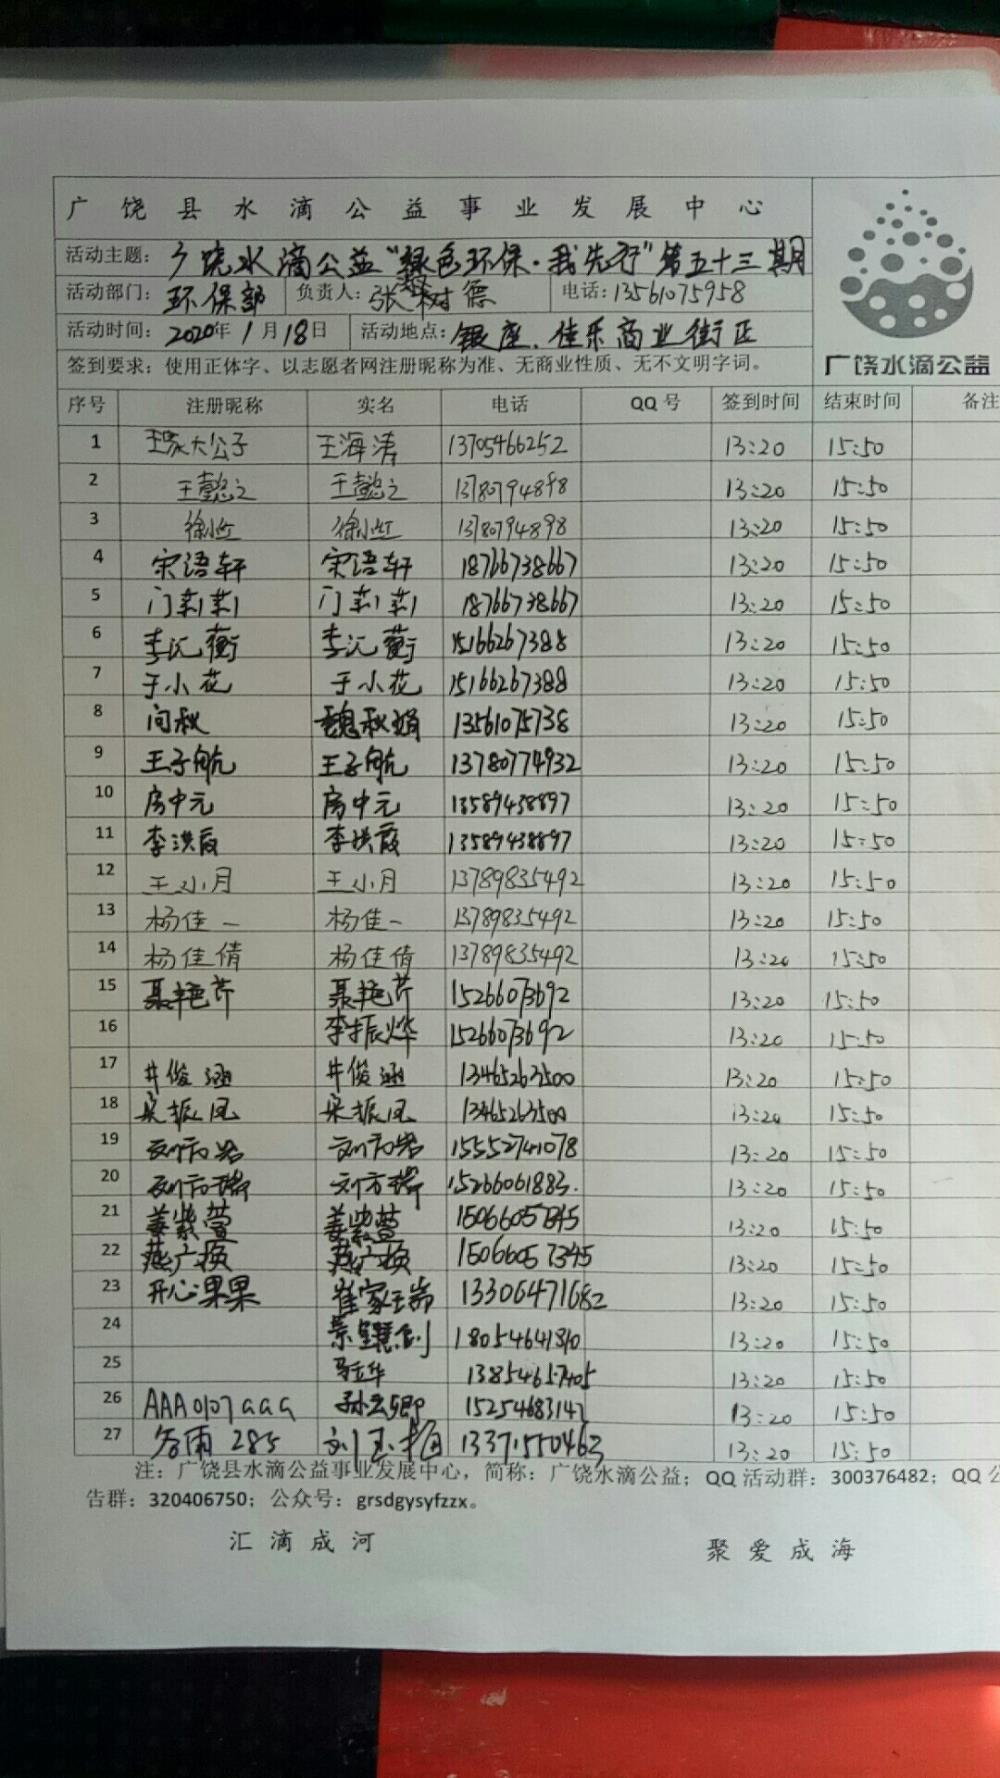 广饶县水滴公益事业发展中心
活动主题：广饶水滴公益"绿色环保·我先行"第五十三期
活动部门：环保部 负责人：张树德 电话：13561075958
活动时间：2020年1月18日 活动地点：银座、佳乐商业街区
签到要求：使用正体字、以志愿者网注册昵称为准、无商业性质、无不文明字词。
广饶水滴公益
序号 注册昵称 实名 电话 QQ号 签到时间 结束时间 备注
1 王家大公子 王海涛 13705466252 13:20 15:50
2 王懿之 王懿之 13780794898 13:20 15:50
3 徐小红 徐小红 13780794898 13:20 15:50
4 宋语轩 宋语轩 18766738667 13:20 15:50
5 门莉莉 门莉莉 18766738667 13:20 15:50
6 李沅蘅 李沅蘅 15166267388 13:20 15:50
7 于小花 于小花 15166267388 13:20 15:50
8 问秋 魏秋娟 13561075738 13:20 15:50
9 王子航 王子航 13780774932 13:20 15:50
10 房中元 房中元 13589438897 13:20 15:50
11 李洪霞 李洪霞 13589438897 13:20 15:50
12 王小月 王小月 13789835492 13:20 15:50
13 杨佳一 杨佳一 13789835492 13:20 15:50
14 杨佳倩 杨佳倩 13789835492 13:20 15:50
15 聂艳芹 聂艳芹 15266073692 13:20 15:50
16 李振烨 15266073692 13:20 15:50
17 井俊涵 井俊涵 13465263500 13:20 15:50
18 梁振凤 梁振凤 13465263500 13:20 15:50
19 15552741078 13:20 15:50
20 刘方瑞 刘方瑞 15266061883. 13:20 15:50
21 姜紫萱 姜紫萱 15066057345 13:20 15:50
22 燕广换 燕广换 15066057345 13:20 15:50
23 开心果果 崔家瑞 13306471682 13:20 15:50
24 13:20 15:50
25 13854657405 13:20 15:50
26 AAA0107aaa 孙云卿 15254683147 13:20 15:50
27 谷雨285 刘玉梅 13371550463 13:20 15:50
注：广饶县水滴公益事业发展中心，简称：广饶水滴公益；QQ活动群：300376482；QQ公
告群：320406750；公众号：grsdgysyfzzx。
汇滴成河 聚爱成海